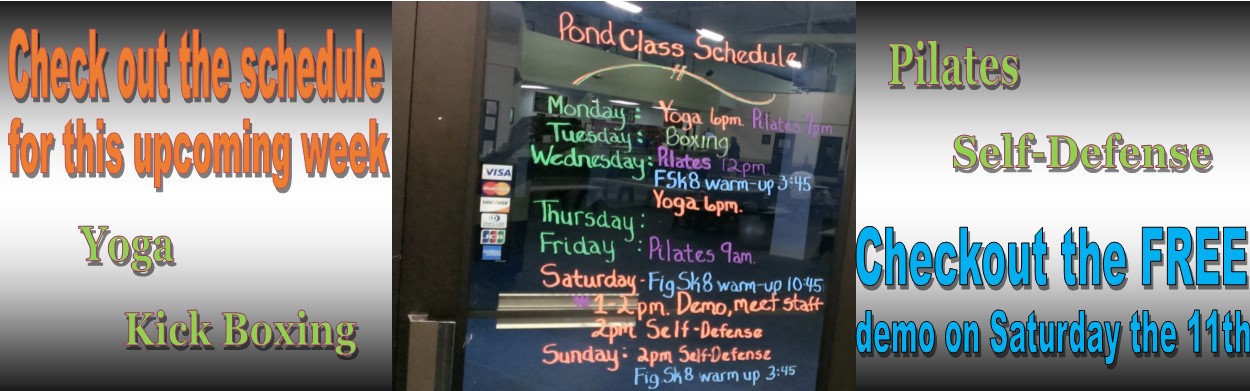 Check out the schedule
for this upcoming week
Yoga
Kick Boxing
Pond Class Schedule
Monday: Yoga 6pm. Pilates 7pm
Tuesday: Boxing
Wednesday: Pilates 12pm
FSk8 warm-up 3:45
Yoga 6pm.
Thursday:
Friday : Pilates 9am.
Saturday - Fig Sk8 warm-up 10:45
1-2pm. Demo, meet staff
2pm Self-Defense
Sunday: 2pm Self-Defense
Fig Sk8 warm up 3:45
VISA
MasterCard
DISCOVER
JCB
Pilates
Self-Defense
Checkout the FREE
demo on Saturday the 11th